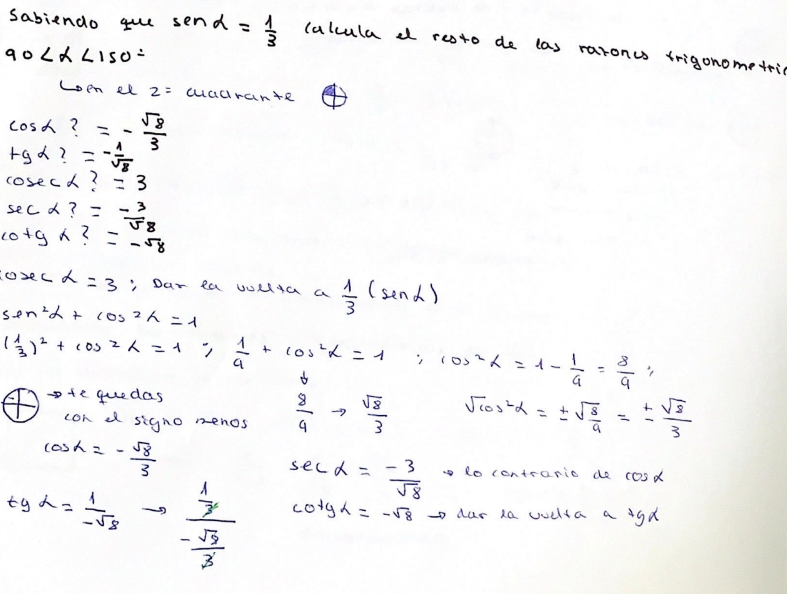 Sabiendo que sen α = 1/3 calcula el resto de las razones trigonometric
90 < α < 180º
↳ en el 2º cuadrante
cos α ? = - √8/3
tg α ? = - 1/√8
cosec α ? = 3
sec α ? = - 3/√8
cotg α ? = - √8
cosec α = 3 ; Dar la vuelta a 1/3 (sen α)
sen²α + cos²α = 1
(1/3)² + cos²α = 1 ; 1/9 + cos²α = 1 ; cos²α = 1 - 1/9 = 8/9 ;
→ te quedas con el signo menos
8/9 → √8/3
√cos²α = ± √8/9 = ± √8/3
cos α = - √8/3
sec α = -3/√8 → lo contrario de cos α
tg α = 1/-√8 → 1/3 / - √8/3
cotg α = - √8 → dar la vuelta a tg α